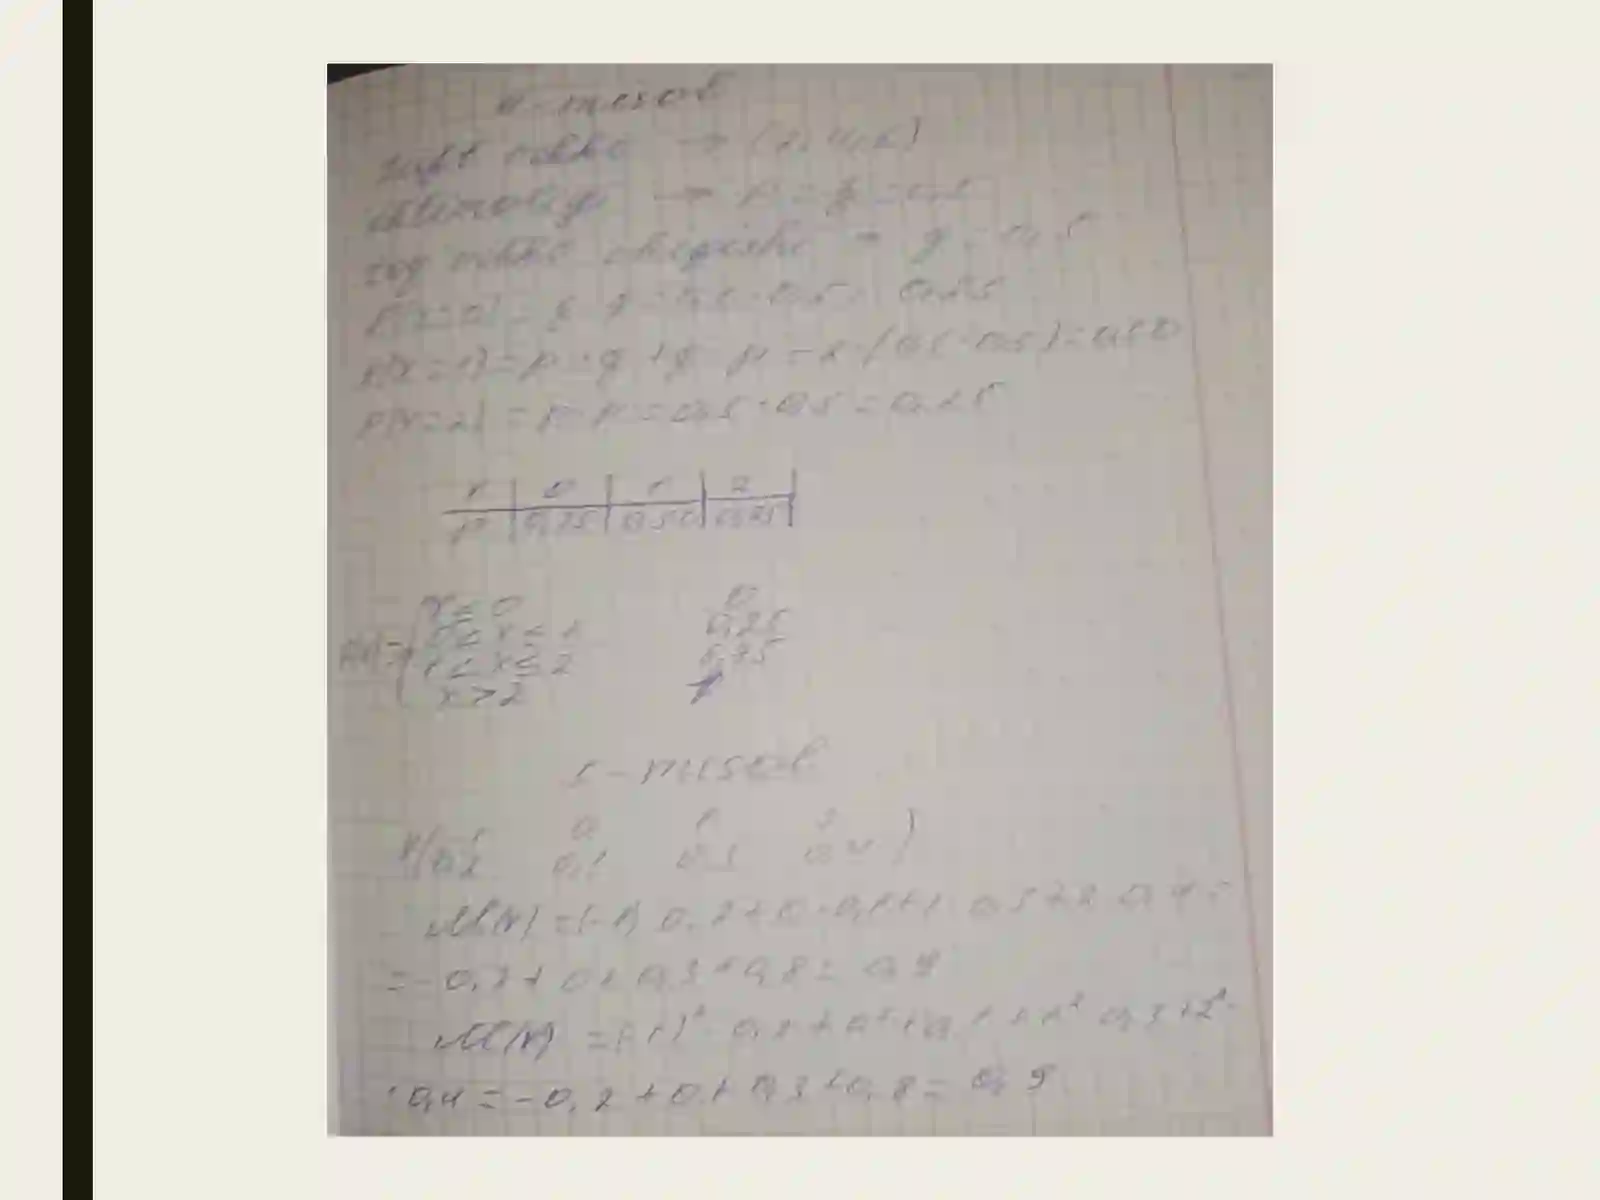 4-misol
juft ochko → (2,4,6)
→ p = = 0,5
ochko chiqishi → q = 0,5
P(x=0) = q·q = 0,5·0,5 = 0,25
P(x=1) = p·q+q·p = 2·(0,5·0,5)=0,50
P(x=2) = p·p = 0,5·0,5 = 0,25
x 0 1 2
p 0,25 0,50 0,25
x ≤ 0 0
0 < x ≤ 1 0,25
F(x)= 1 < x ≤ 2 0,75
x > 2 1
5-misol
-1 0 1 2
X( 0,2 0,1 0,3 0,4 )
M(x) = (-1)·0,2+0·0,1+1·0,3+2·0,4=
= -0,2+0+0,3+0,8= 0,9
M(x) = (-1)²·0,2+0²·0,1+1²·0,3+2²·
·0,4 = -0,2+0+0,3+0,8= 0,9